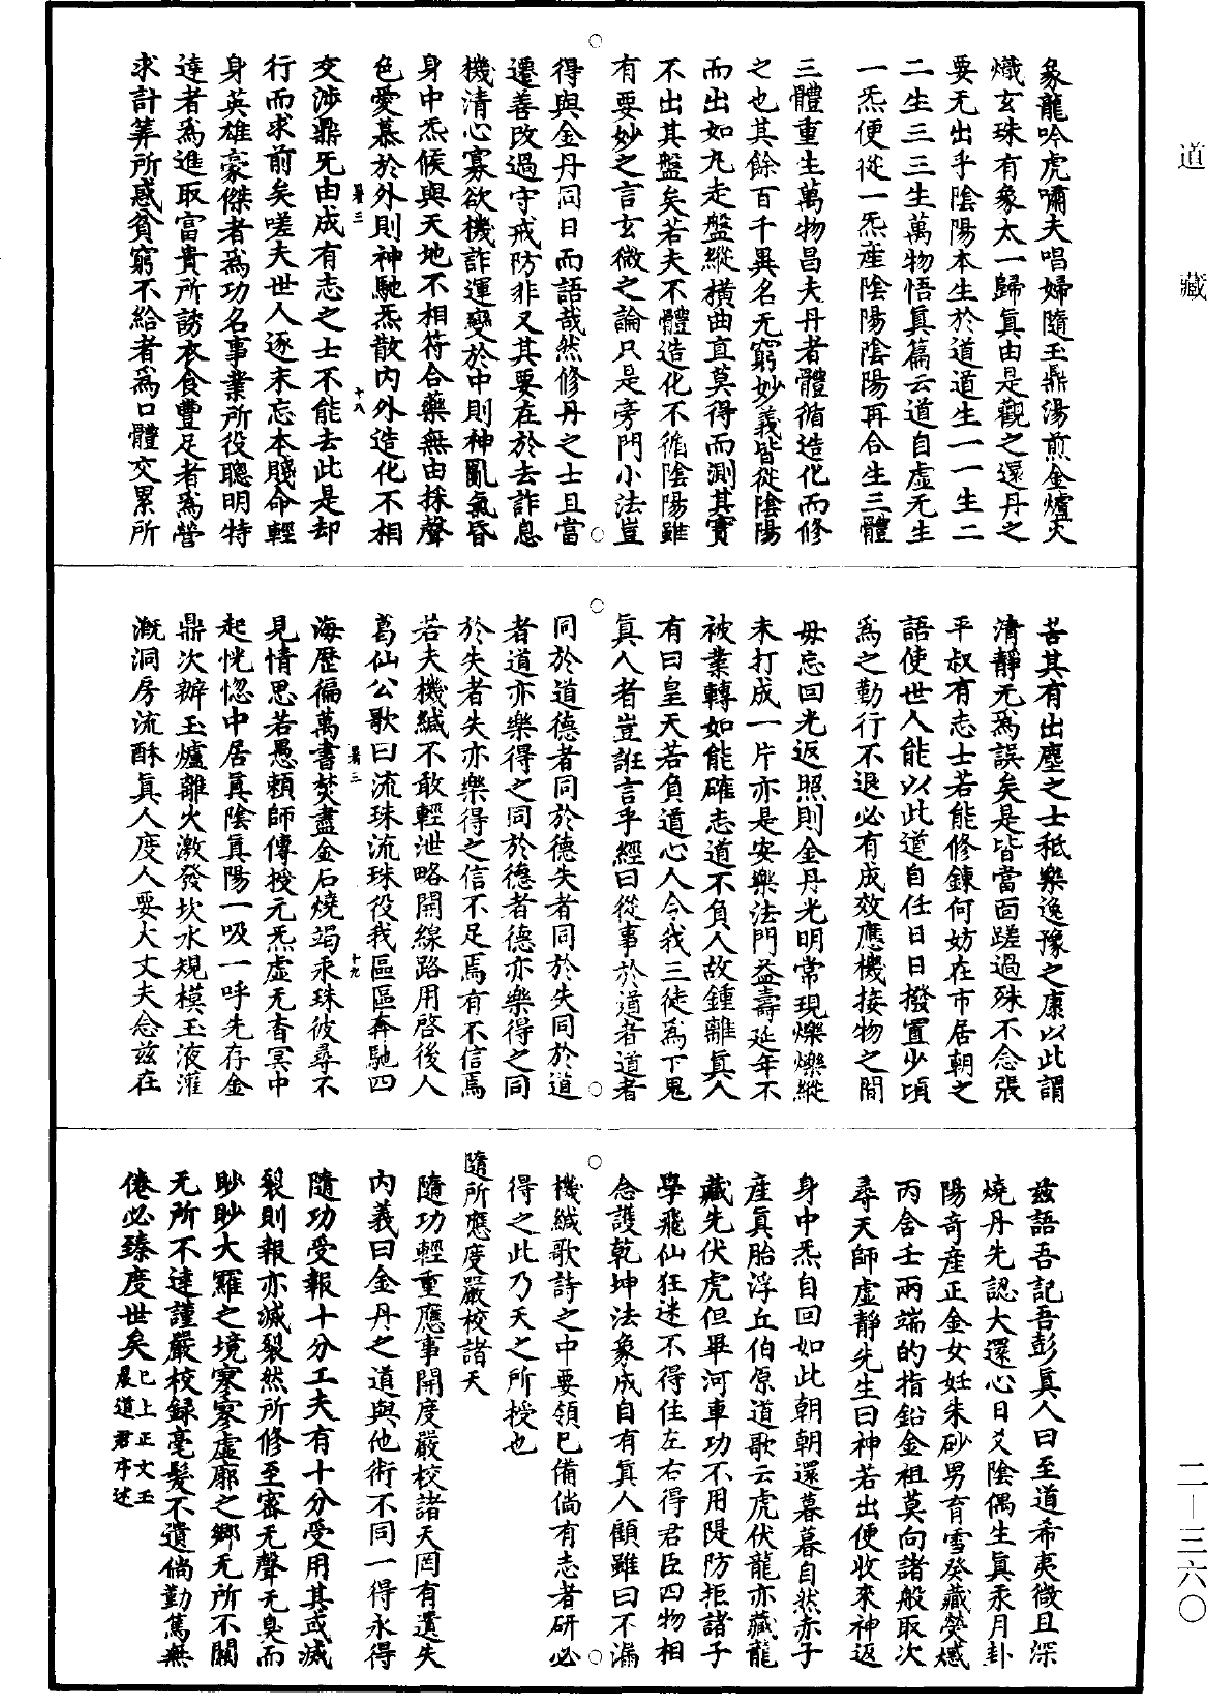 道藏
象龍吟虎嘯夫唱婦隨玉鼎湯煎金爐火
熾玄珠有象太一歸真由是觀之還丹之
要无出乎陰陽本生於道道生一一生二
二生三三生萬物悟真篇云道自虛无生
一炁便從一炁產陰陽陰陽再合生三體
三體重生萬物昌夫丹者體循造化而修
之也其餘百千異名无窮妙義皆從陰陽
而出如九走盤縱橫曲直莫得而測其實
不出其盤矣若夫不體造化不循陰陽雖
有要妙之言玄微之論只是旁門小法豈
得與金丹同日而語哉然修丹之士且當
遷善改過守戒防非又其要在於去詐息
機清心寡欲機詐運變於中則神亂氣昏
身中炁候與天地不相符合藥無由採聲
色愛慕於外則神馳炁散內外造化不相
暑三
十八
交涉鼎旡由成有志之士不能去此是却
行而求前矣嗟夫世人逐末忘本賤命輕
身英雄豪傑者為功名事業所役聰明特
達者為進取富貴所誘衣食豐足者為營
求計筭所惑貧窮不給者為口體交累所
苦其有出塵之士秪樂逸豫之康以此謂
清靜无為誤矣是皆當面蹉過殊不念張
平叔有志士若能修鍊何妨在市居朝之
語使世人能以此道自任日日撥置少頃
為之勤行不退必有成效應機接物之間
毋忘回光返照則金丹光明常現爍爍縱
未打成一片亦是安樂法門益壽延年不
被業轉如能確志道不負人故鍾離真人
有曰皇天若負道心人令我三徒為下鬼
真人者豈誑言乎經曰從事於道者道者
同於道德者同於德失者同於失同於道
者道亦樂得之同於德者德亦樂得之同
於失者失亦樂得之信不足焉有不信焉
若夫機緘不敢輕泄略開線路用啓後人
葛仙公歌曰流珠流珠役我區區奔馳四
暑三
十九
海歷徧萬書焚盡金石燒竭汞珠彼尋不
見情思若愚賴師傳授元炁虛无杳冥中
起恍惚中居真陰真陽一吸一呼先存金
鼎次辦玉爐離火激發坎水規模玉液灌
溉洞房流酥真人度人要大丈夫念茲在
茲語吾記吾彭真人曰至道希夷微且深
燒丹先認大還心日爻陰偶生真汞月卦
陽奇產正金女妊朱砂男育雪癸藏熒惑
丙含壬兩端的指鉛金祖莫向諸般取次
尋天師虛靜先生曰神若出便收來神返
身中炁自回如此朝朝還暮暮自然赤子
產真胎浮丘伯原道歌云虎伏龍亦藏龍
藏先伏虎但畢河車功不用隄防拒諸子
學飛仙狂迷不得住左右得君臣四物相
念護乾坤法象成自有真人顧雖曰不漏
機緘歌詩之中要領已備倘有志者研必
得之此乃天之所授也
隨所應度嚴校諸天
隨功輕重應事開度嚴校諸天罔有遺失
內義曰金丹之道與他術不同一得永得
隨功受報十分工夫有十分受用其或滅
裂則報亦滅裂然所修至密无聲无臭而
眇眇大羅之境寥寥虛廓之鄉无所不關
无所不達謹嚴校録毫髮不遺倘勤篤無
倦必臻度世矣已上正文玉
晨道君序述
二—三六〇